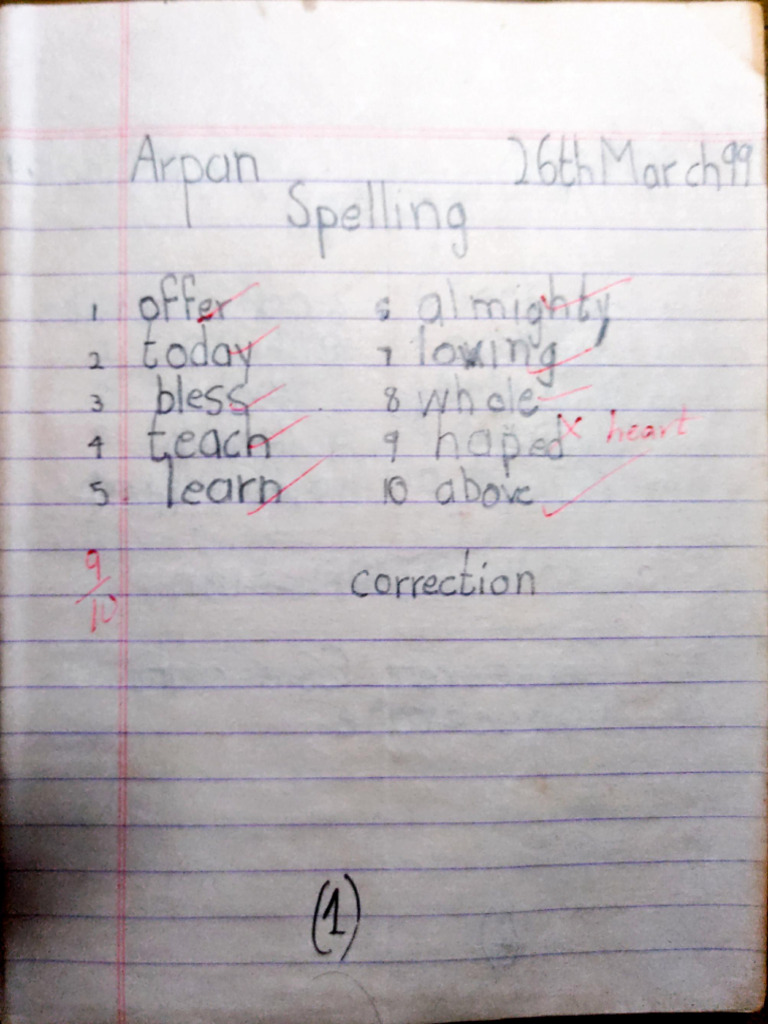 Arpan 26th March 99
Spelling
1 offer 6 almighty
2 today 7 loving
3 bless 8 whole
4 teach 9 hoped x heart
5 learn 10 above
9/10 correction
(1)